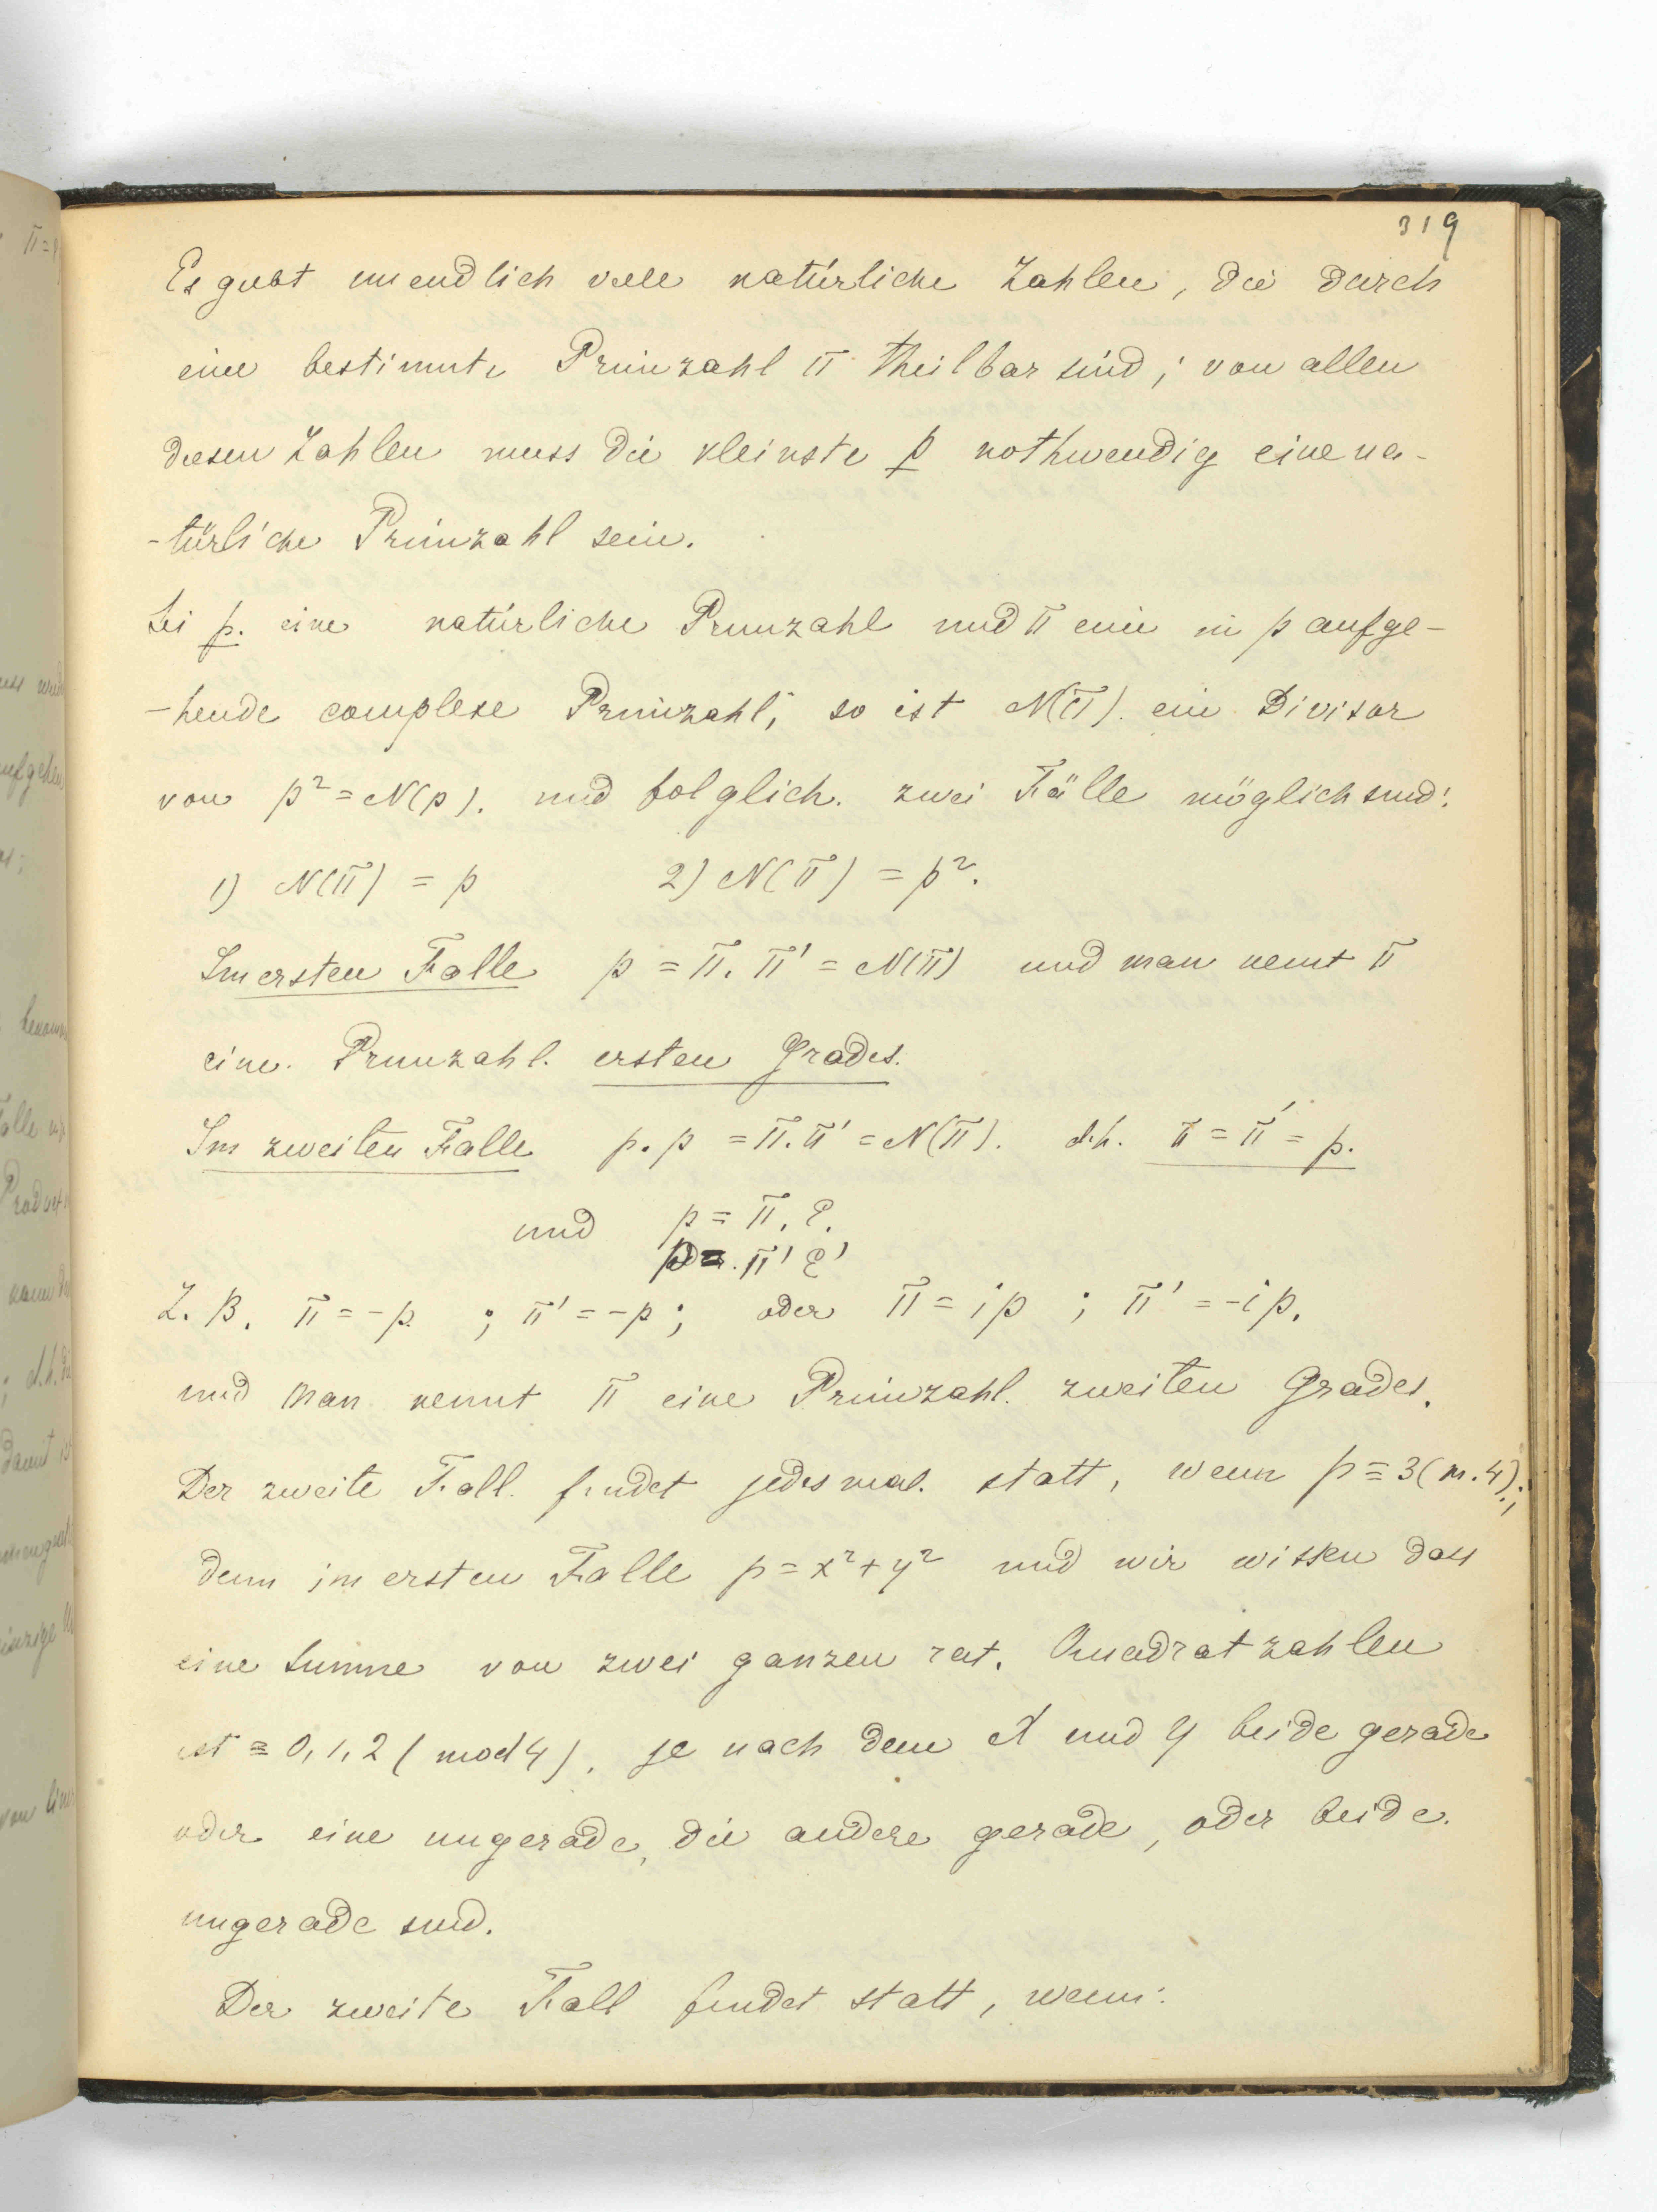 319
Es giebt unendlich viele natürliche Zahlen, die durch
eine bestimmte Primzahl π theilbar sind; von allen
diesen Zahlen muss die kleinste p nothwendig eine na-
-türliche Primzahl sein.
Sei p. eine natürliche Primzahl und π eine in p aufge-
-hende complexe Primzahl, so ist N(π). ein Divisor
von p² = N(p). und folglich. zwei Fälle möglich sind:
1) N(π) = p 2) N(π) = p².
Im ersten Falle p = π. π' = N(π) und man nennt π
eine. Primzahl. ersten Grades.
Im zweiten Falle p. p = π. π' = N(π). d.h. π = π' = p.
und p = π. ε.
p = π' ε'
Z. B. π = -p ; π' = -p ; oder π = ip ; π' = -ip.
und man nennt π eine Primzahl. zweiten Grades.
Der zweite Fall. findet jedesmal. statt, wenn p ≡ 3 (m. 4).;
denn im ersten Falle p = x² + y² und wir wissen dass
eine Summe von zwei ganzen rat. Quadratzahlen
ist ≡ 0, 1, 2 (mod 4), je nach dem X und Y beide gerade
oder eine ungerade, die andere gerade, oder beide.
ungerade sind.
Der zweite Fall findet statt, wenn:
π =
aufgehen
Product
d.h. die
damit